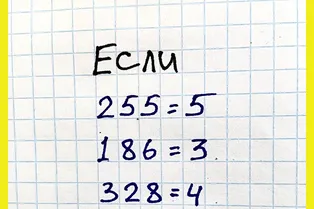 Если
255=5
186=3
328=4